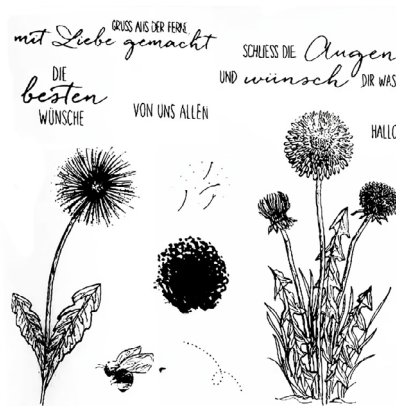 GRUSS AUS DER FERNE,
mit Liebe gemacht
SCHLIESS DIE Augen
UND wünsch DIR WAS
DIE
besten
WÜNSCHE
VON UNS ALLEN
HALLO